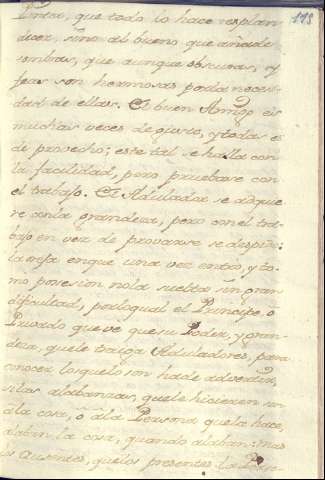 Pintor, que todo lo hace resplan- 113
decer, sino al bueno que añade
sombras, que aunque obscuras, y
feas son hermosas por la neces-
dad de ellas. El buen Amigo es
muchas veces de gusto, y todas es
de provecho; este tal se halla con
la facilidad, pero pruebase con
el trabajo. El Adulador se adquie-
re con la grandeza, pero con el tra-
bajo en vez de provarse se despide:
la casa en que una vez entra, y to-
mo posesion no la suelta sin gran
dificultad, por lo qual el Principe, ò
Privado que ve que su Poder, y gran-
deza, que le traiga Aduladores, para
conocer los que lo son ha de advertir,
si las alabanzas, que le hicieren son
à la cosa, ò à la Persona que la hace,
alaban la cosa, quando alaban: mas
los Ausentes, que los presentes la